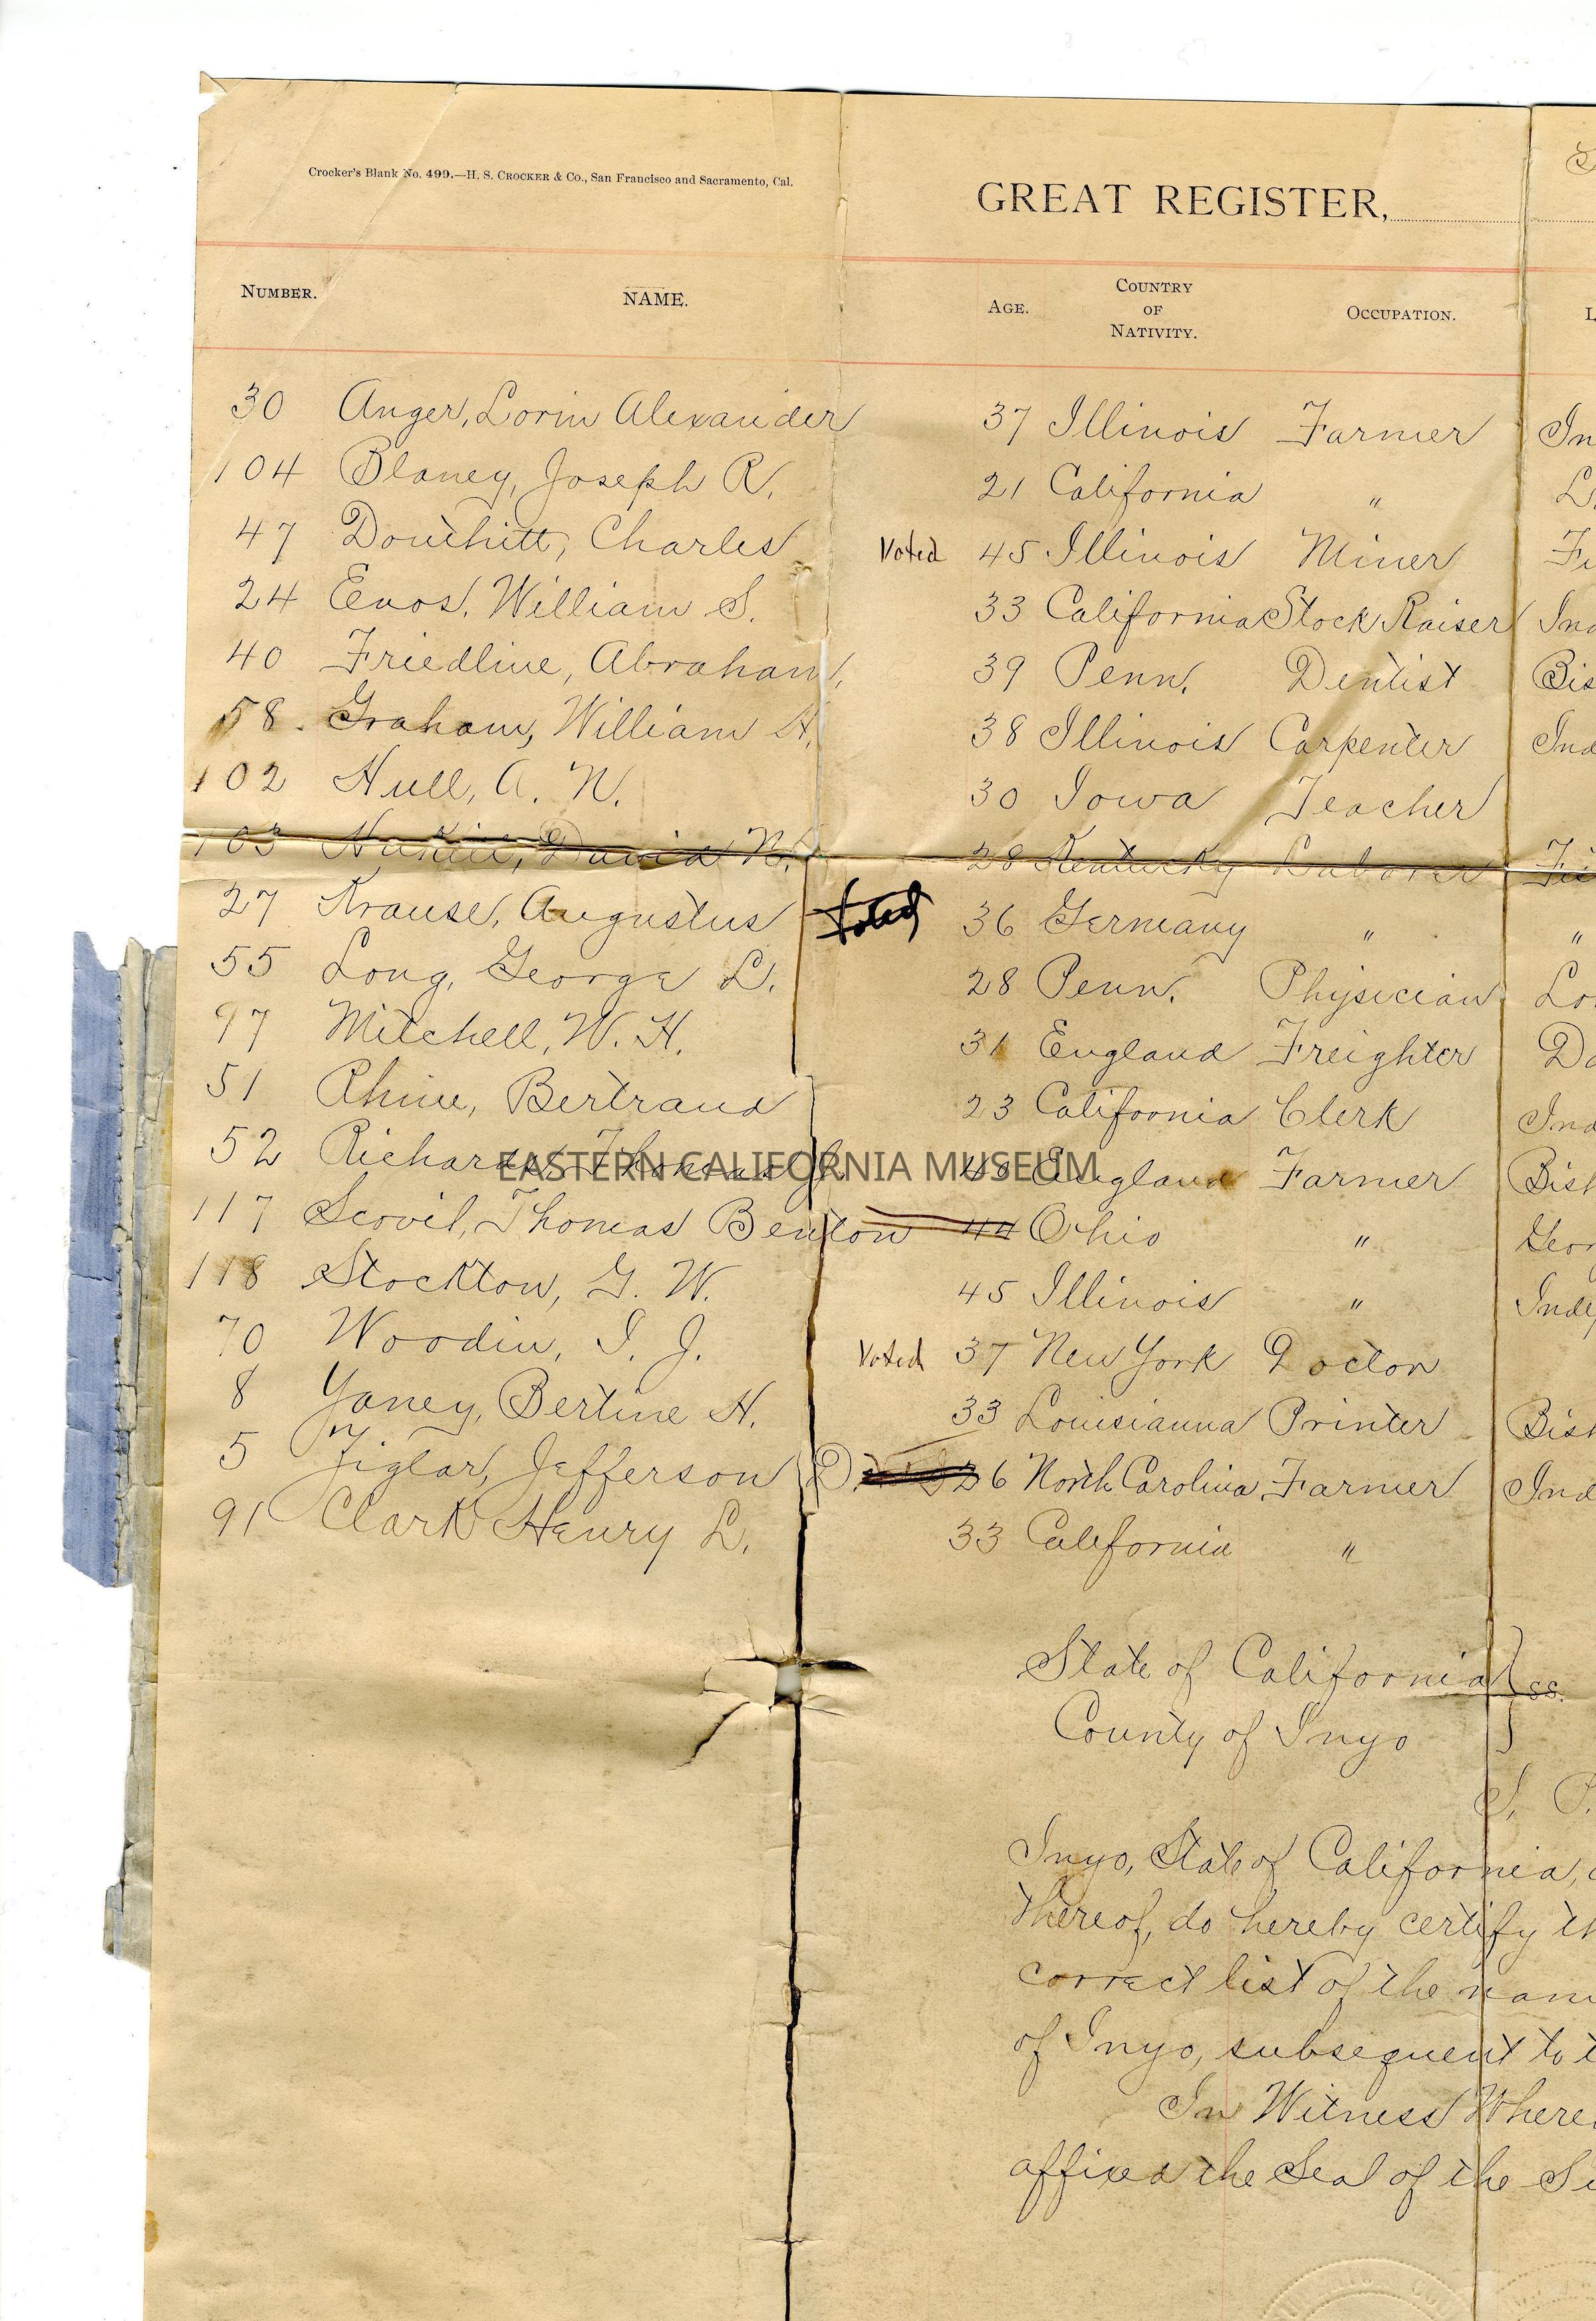 Crocker's Blank No. 499.—H. S. CROCKER & Co., San Francisco and Sacramento, Cal.
GREAT REGISTER,
NUMBER. NAME. AGE. COUNTRY OF NATIVITY. OCCUPATION. L
30 Anger, Lorin Alexander 37 Illinois Farmer In
104 Blaney, Joseph R. 21 California " L
47 Douthitt, Charles Voted 45 Illinois Miner Fi
24 Enos, William S. 33 California Stock Raiser Ind
40 Friedline, Abraham 39 Penn. Dentist Bis
58. Graham, William A. 38 Illinois Carpenter Ind
102 Hull, A. N. 30 Iowa Teacher
103 David N. 28 Kentucky Laborer Fis
27 Krause, Augustus Voted 36 Germany " "
55 Long, George L. 28 Penn. Physician Lo
97 Mitchell, W. H. 31 England Freighter Da
51 Rhine, Bertrand 23 California Clerk Ind
52 Richards, Thomas 40 England Farmer Bish
EASTERN CALIFORNIA MUSEUM
117 Scovil, Thomas Benton 44 Ohio " Geor
118 Stockton, G. W. 45 Illinois " Inde
70 Woodin, I. J. Voted 37 New York Doctor
8 Yaney, Bertine H. 33 Louisianna Printer Bish
5 Ziglar, Jefferson D. 26 North Carolina Farmer Ind
91 Clark Henry L. 33 California "
State of California } ss.
County of Inyo }
I, P.
Inyo, State of California,
thereof, do hereby certify th
correct list of the nam
of Inyo, subsequent to t
In Witness Where
affixed the Seal of the Su